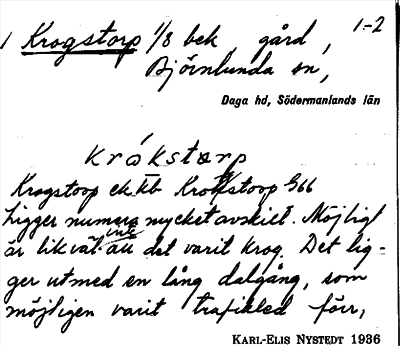 1 Krogstorp 1/8 bek, gård, 1-2
Björnlunda sn,
Daga hd, Södermanlands län
krókstɷrp
Krogstorp ek. kb Krokstorp G66
Ligger numera mycket avskilt. Möjligt
är likväl att inte det varit krog. Det lig-
ger utmed en lång dalgång, som
möjligen varit trafikled förr,
KARL-ELIS NYSTEDT 1936